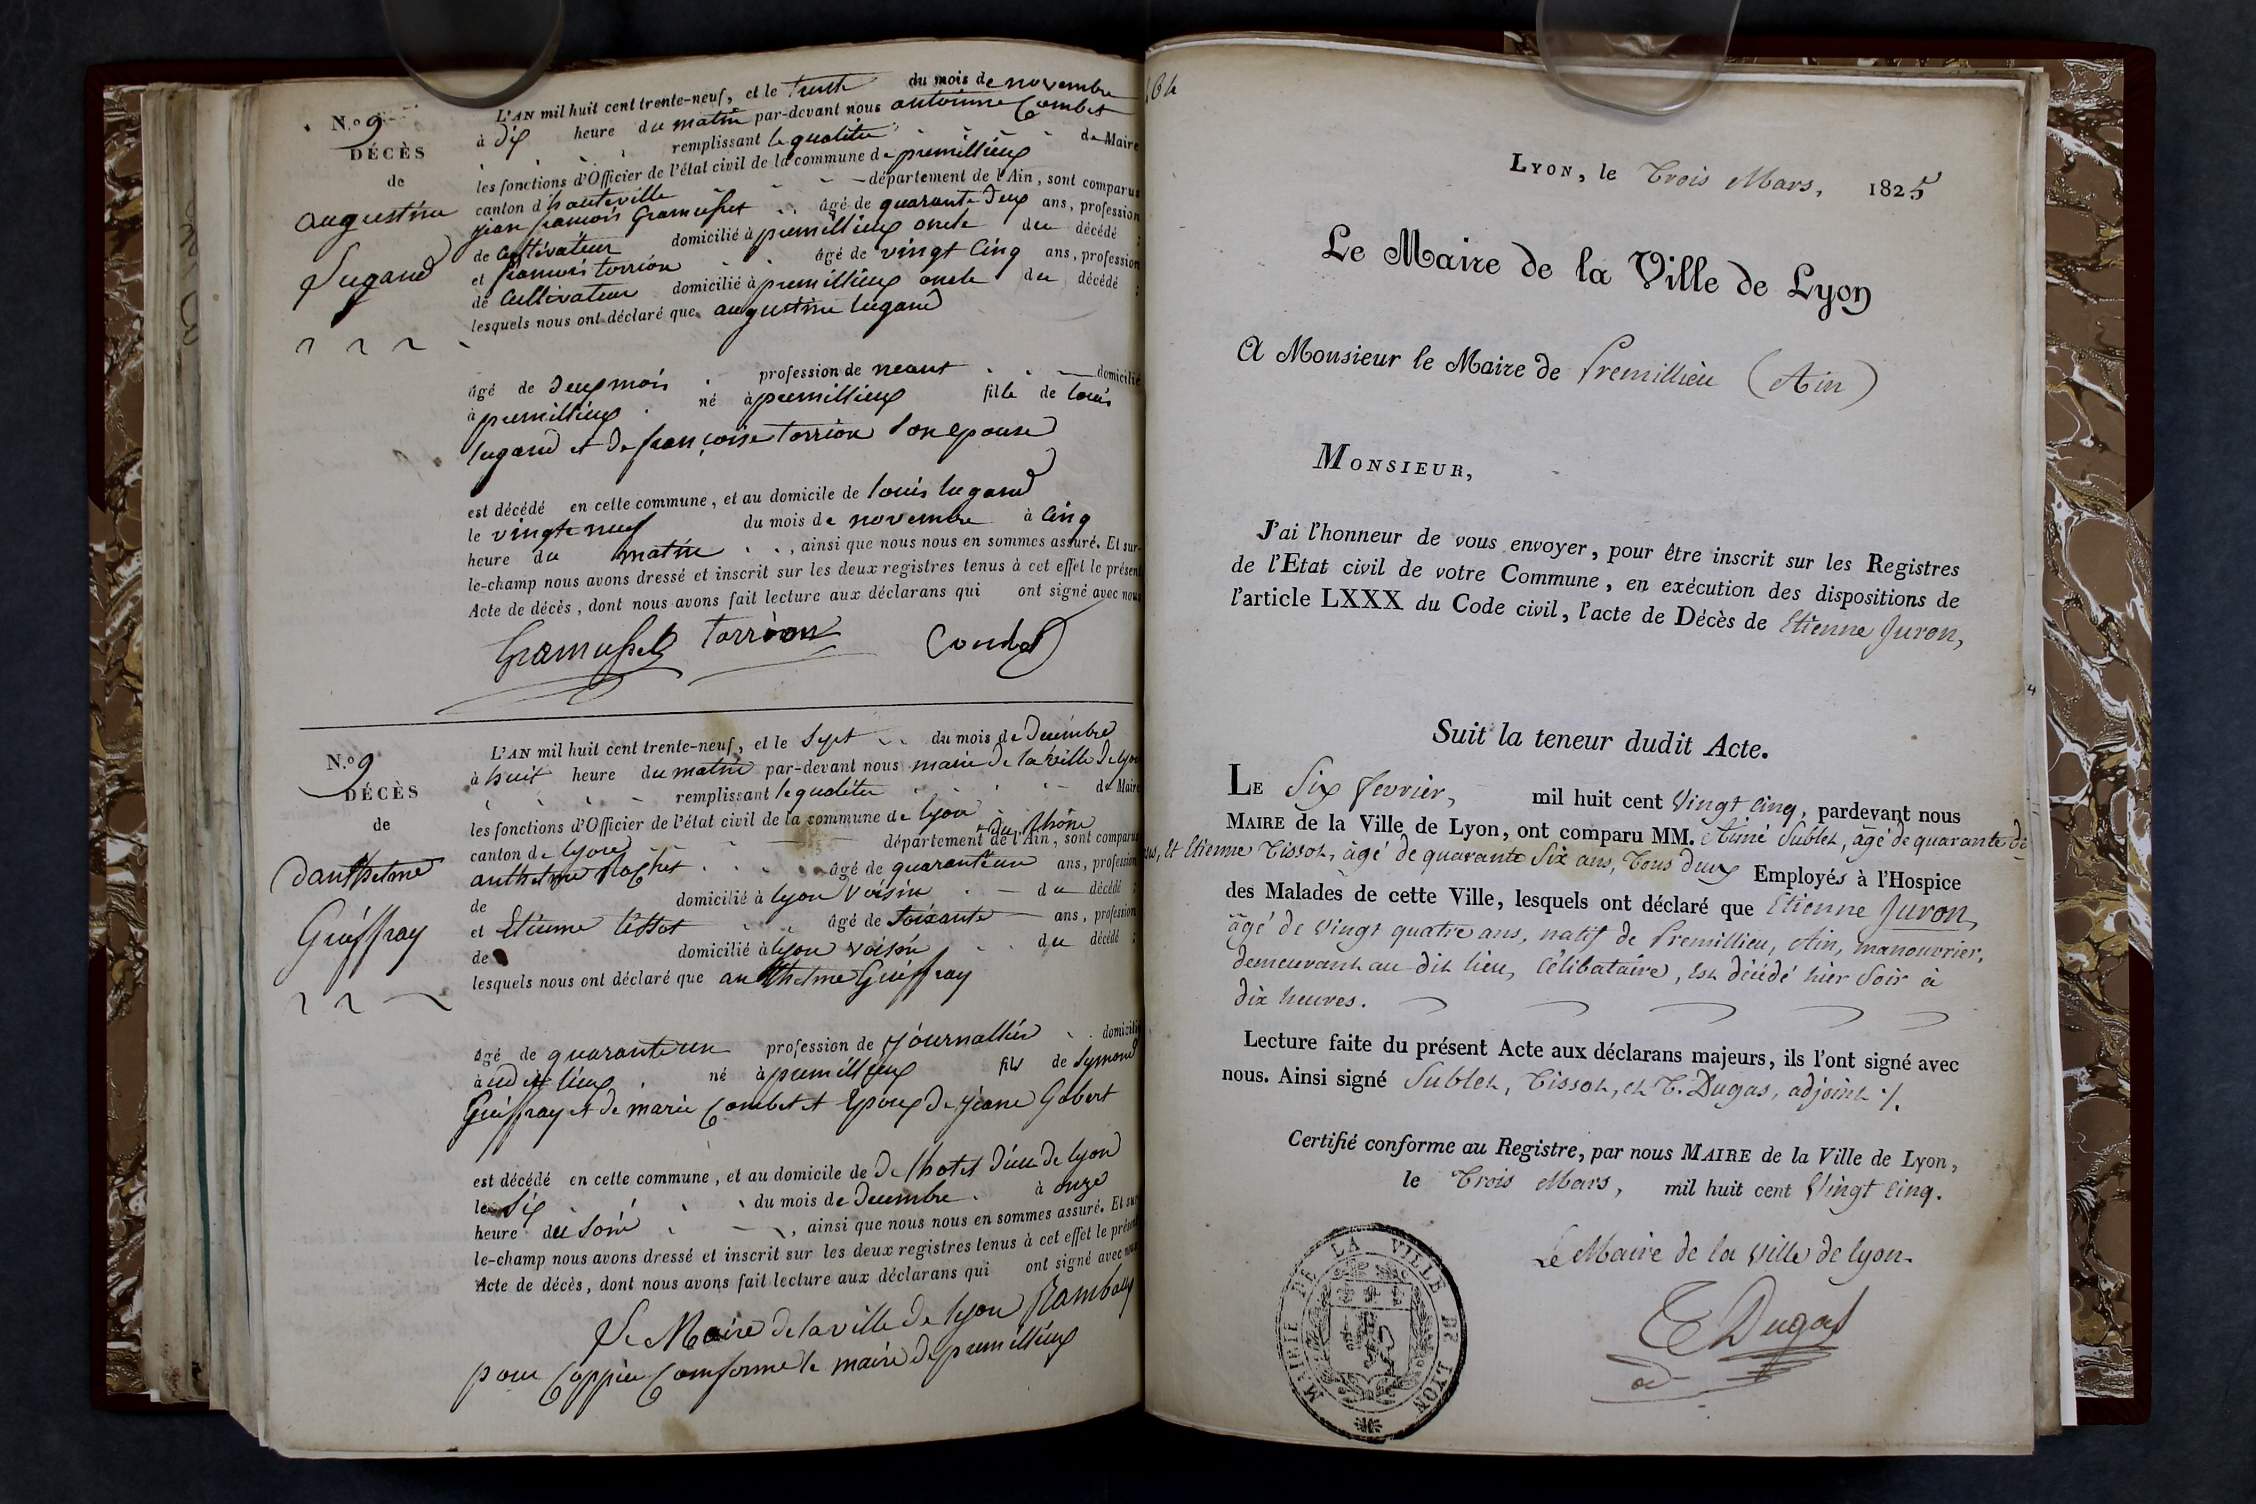 N.o 9
DÉCÈS
de
augustine
Lugand
L'AN mil huit cent trente-neuf, et le trente du mois de novembre
à dix heure du matin par-devant nous antoinne Combet
remplissant le qualiter de Maire
les fonctions d'Officier de l'état civil de la commune de premillieux
canton d'hauteville département de l'Ain, sont comparus
jean francois Gramusset âgé de quarante deux ans, profession
de Cultivateur domicilié à premillieux oncle du décédé ;
et francois torrion âgé de vingt Cinq ans, profession
de Cultivateur domicilié à premillieux oncle du décédé ;
lesquels nous ont déclaré que augustine lugand
âgé de deux mois profession de neant domicilié
à premillieux né à premillieux fille de louis
lugand et de françoise torrion Son epouse
est décédé en cette commune, et au domicile de louis lugand
le vingt neuf du mois de novembre à Cinq
heure du matin, ainsi que nous nous en sommes assuré. Et sur-
le-champ nous avons dressé et inscrit sur les deux registres tenus à cet effet le présent
Acte de décès, dont nous avons fait lecture aux déclarans qui ont signé avec nous
Gramusset torrion Combet
N.o 9
DÉCÈS
de
danthelme
Guiffray
L'AN mil huit cent trente-neuf, et le Sept du mois de Decembre
à huit heure du matin par-devant nous maire de la ville de lyon
remplissant le qualiter de Maire
les fonctions d'Officier de l'état civil de la commune de lyon
du Rhône
canton de lyon département de l'Ain, sont comparus
anthelme âgé de quarante un ans, profession
de domicilié à lyon Voisin du décédé ;
et Etienne tissot âgé de Soixante ans, profession
de domicilié à lyon voisin du décédé ;
lesquels nous ont déclaré que anthelme Guiffray
âgé de quarante un profession de journallier domicilié
à udit lieux né à premillieux fils de Symond
Guiffray et de marie Combet et Epoux de jeane Gobert
est décédé en cette commune, et au domicile de De lhotel Dieu de lyon
le Six du mois de Decembre à onze
heure du Soire, ainsi que nous nous en sommes assuré. Et sur
le-champ nous avons dressé et inscrit sur les deux registres tenus à cet effet le présent
Acte de décès, dont nous avons fait lecture aux déclarans qui ont signé avec nous
Le Maire de la ville de lyon
pour Coppie Comforme le maire de premillieux
LYON, le Trois Mars, 1825
Le Maire de la Ville de Lyon
A Monsieur le Maire de Premillieu (Ain)
MONSIEUR,
J'ai l'honneur de vous envoyer, pour être inscrit sur les Registres
de l'Etat civil de votre Commune, en exécution des dispositions de
l'article LXXX du Code civil, l'acte de Décès de Etienne Juron,
Suit la teneur dudit Acte.
LE Six fevrier, mil huit cent Vingt cinq, pardevant nous
MAIRE de la Ville de Lyon, ont comparu MM. Aimé Sublet, âgé de quarante
Et Etienne Tissot, âgé de quarante Six ans, Tous deux Employés à l'Hospice
des Malades de cette Ville, lesquels ont déclaré que Etienne Juron
âgé de Vingt quatre ans, natif de Premillieu, Ain, manouvrier,
demeurant au dit lieu, Célibataire, Est décédé hier Soir à
dix heures.
Lecture faite du présent Acte aux déclarans majeurs, ils l'ont signé avec
nous. Ainsi signé Sublet, Tissot, et T. Dugas, adjoint ./.
Certifié conforme au Registre, par nous MAIRE de la Ville de Lyon,
le Trois Mars, mil huit cent Vingt cinq.
Le Maire de la Ville de lyon.
T Dugas
ad
MAIRIE DE LA VILLE DE LYON